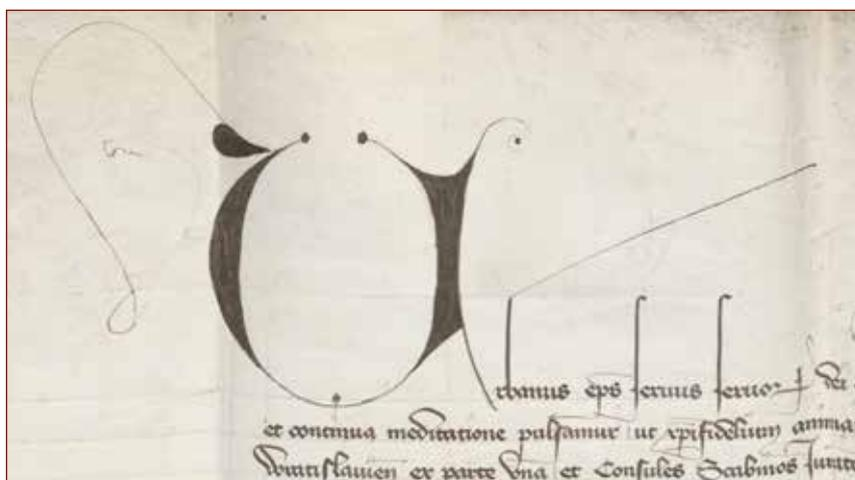 Urbanus eps seruus seruor dei
et continua meditatione pulsamur ut xpifidelium anima
Wratislauien ex parte vna et Consules Scabinos Jurato